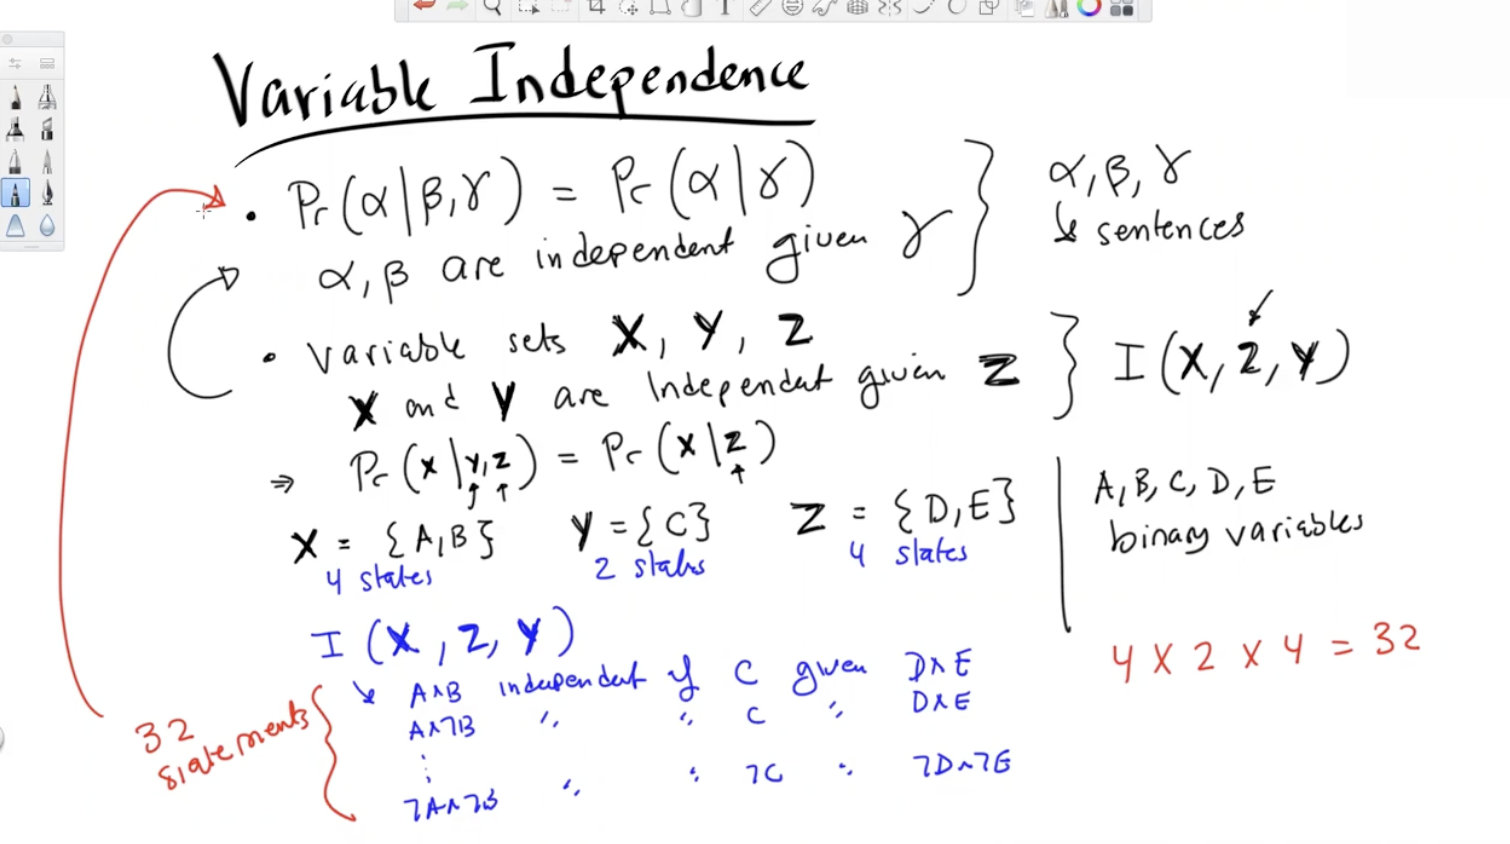 Variable Independence
• Pr(α|β,γ) = Pr(α|γ)
α,β are independent given γ
α,β,γ
↳ sentences
• variable sets X, Y, Z
X and Y are Independent given Z
I(X,Z,Y)
⇒ Pr(x|y,z) = Pr(x|z)
X = {A,B} Y = {C} Z = {D,E}
4 states 2 states 4 states
A,B,C,D,E
binary variables
I(X,Z,Y)
4 x 2 x 4 = 32
↳ A∧B independent of C given D∧E
A∧¬B " " C " D∧E
⋮
¬A∧¬B " " ¬C " ¬D∧¬E
32
statements